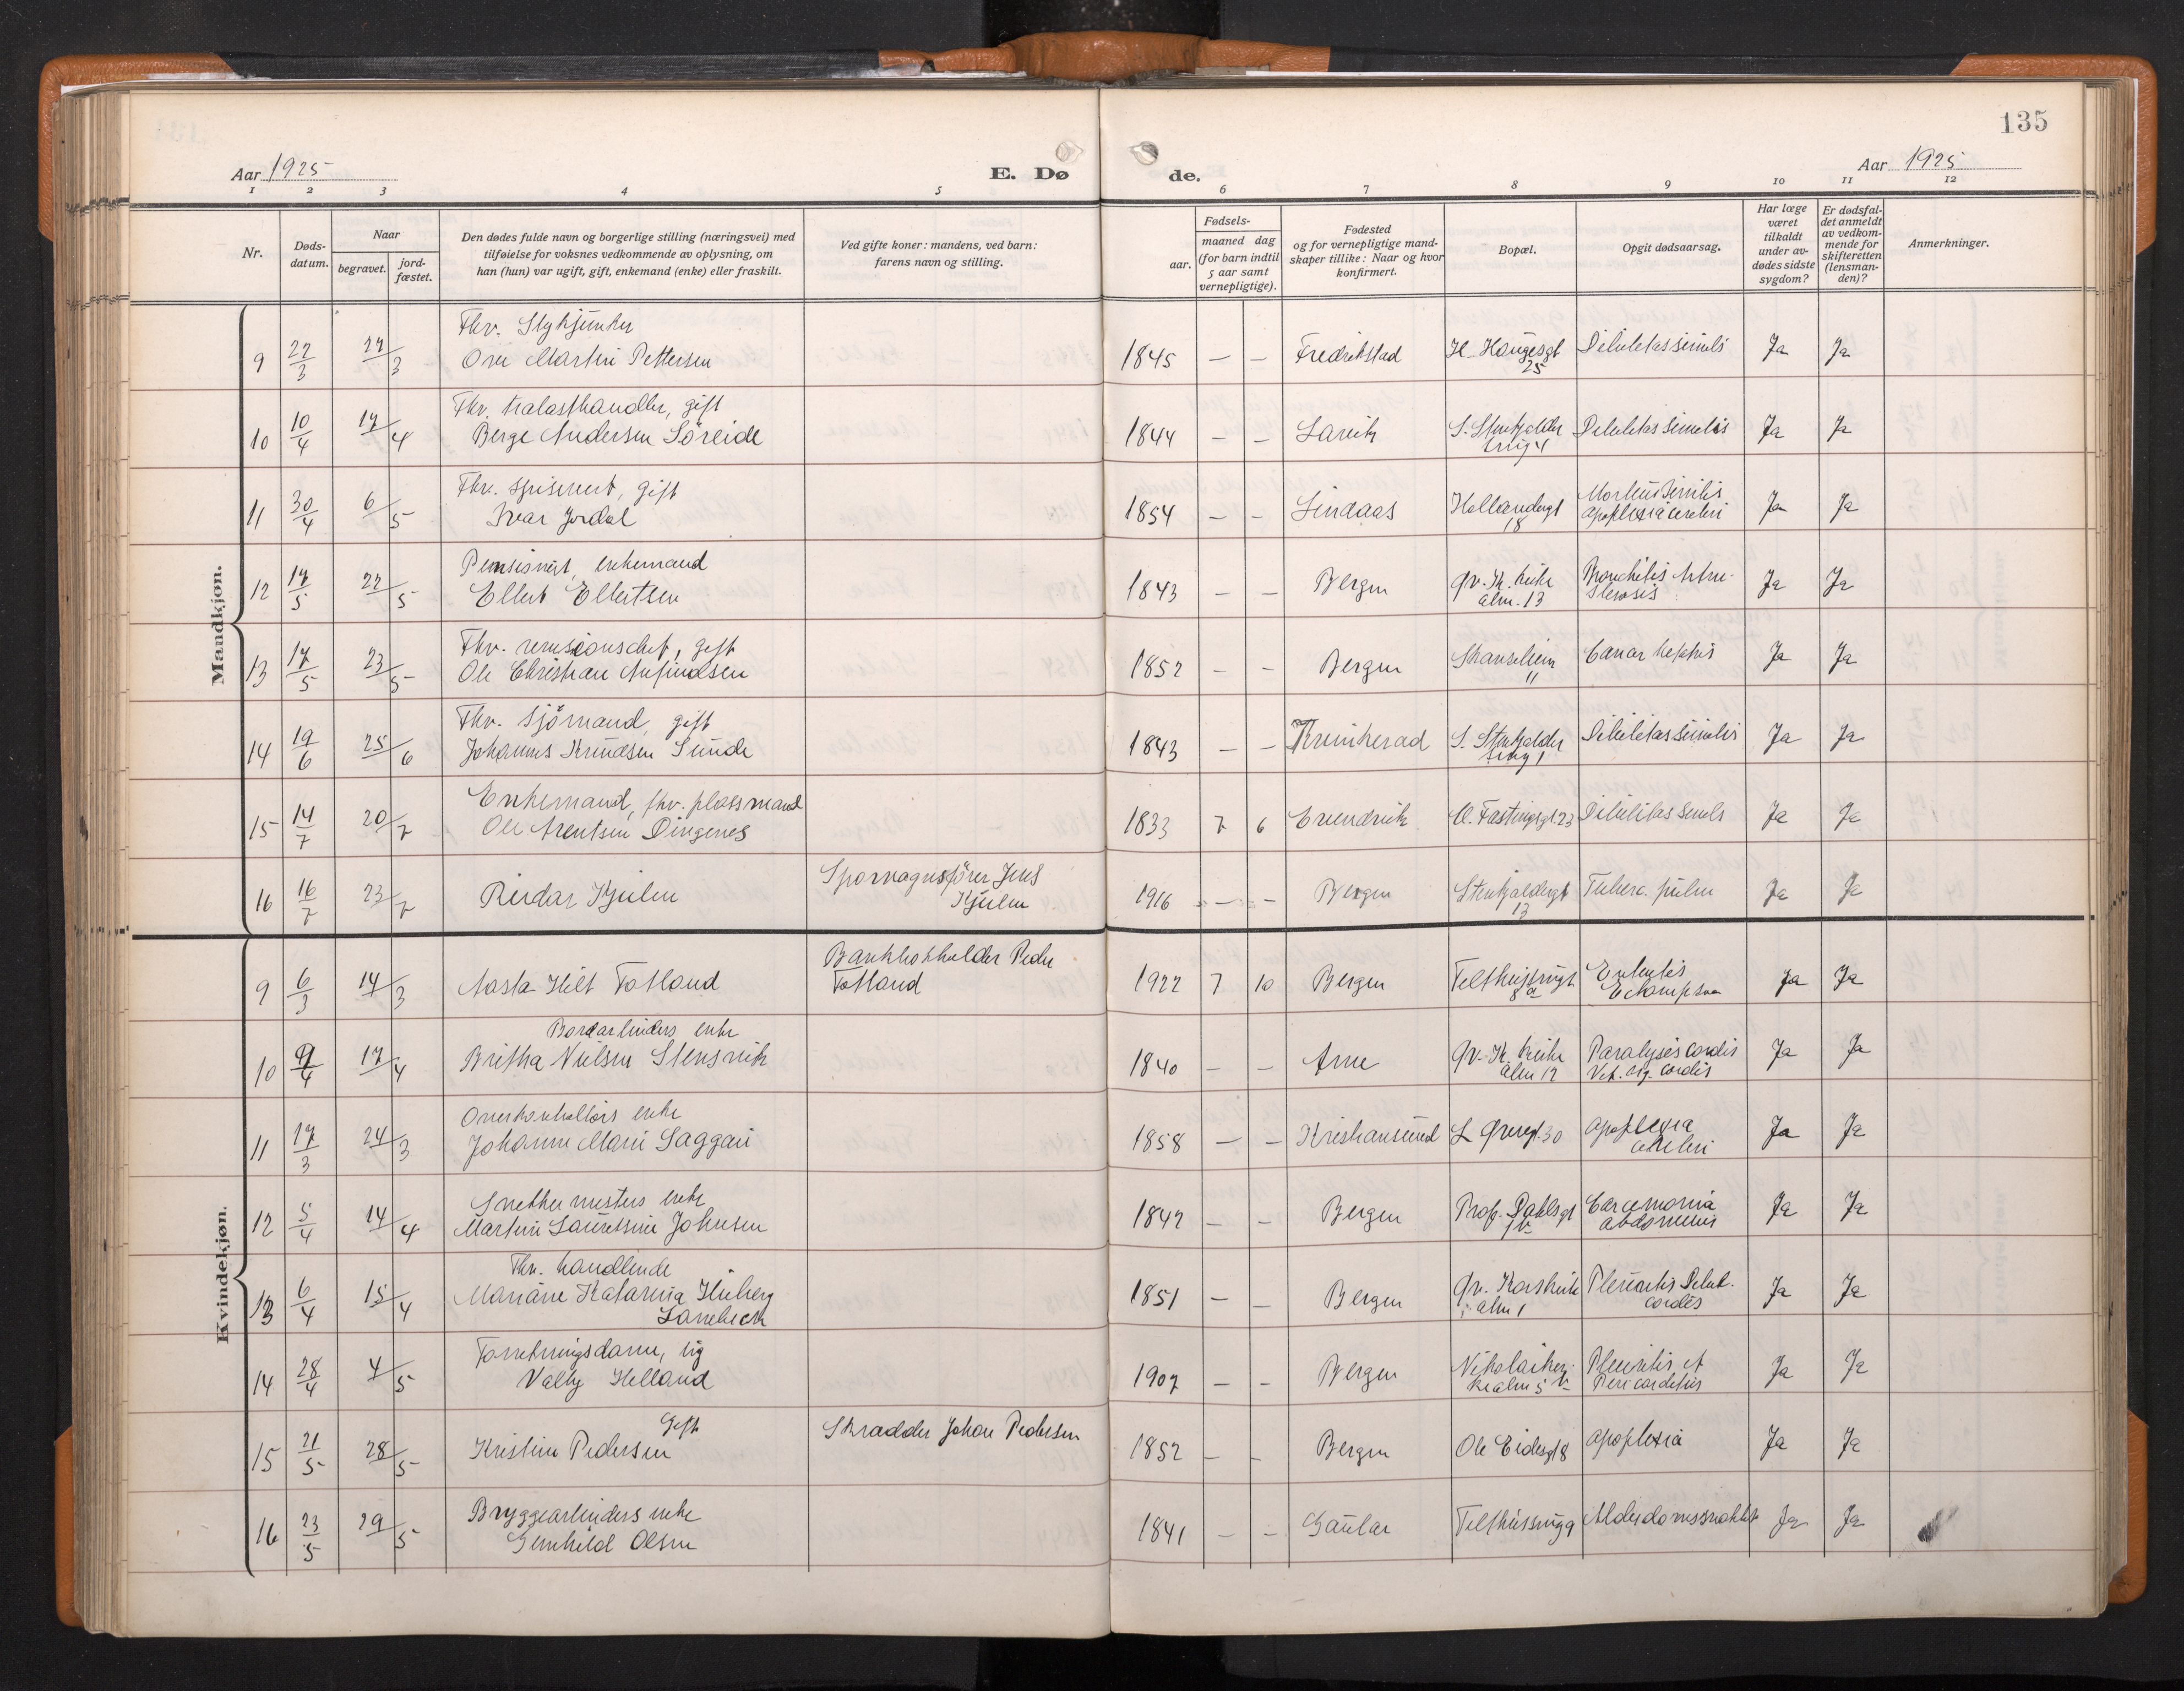 135
Aar 1925
E. Dø
de.
Aar 1925
1 2 3 4 5 6 7 8 9 10 11 12
Nr.
Døds-
datum.
Naar
begravet.
jord-
fæstet.
Den dødes fulde navn og borgerlige stilling (næringsvei) med
tilføielse for voksnes vedkommende av oplysning, om
han (hun) var ugift, gift, enkemand (enke) eller fraskilt.
Ved gifte koner: mandens, ved barn:
farens navn og stilling.
Fødsels-
aar.
maaned dag
(for barn indtil
5 aar samt
vernepligtige).
Fødested
og for vernepligtige mand-
skaper tillike: Naar og hvor
konfirmert.
Bopæl.
Opgit dødsaarsag.
Har læge
været
tilkaldt
under av-
dødes sidste
sygdom?
Er dødsfal-
det anmeldt
av vedkom-
mende for
skifteretten
(lensman-
den)?
Anmerkninger.
Mandkjøn.
Fhv.
9 22/3 27/3 Martin Pettersen 1845 — — Fredrikstad H. Haugesgt Debilitas senilis Ja Ja
25
Fhv. trælasthandler, gift
10 10/4 17/4 Berge Andersen Söreide 1844 — — S. Stenkjelder Debilitas senilis Ja Ja
smug 4
Fhv. spisevert, gift
11 30/4 6/5 Ivar Jordal 1854 — — Lindaas Hollendergt Ja Ja
18 apoplexia cerebri
Pensionist, enkemand
12 17/5 22/5 Ellert Ellertsen 1843 — — Bergen Øv. K. kirke Bronchitis Ja Ja
alm. 13
Fhv. revisionschef, gift
13 17/5 23/5 Ole Christian Anfindsen 1852 — — Bergen Cancer hepatis Ja Ja
11
Fhv. sjömand, gift
14 19/6 25/6 Johannes Knudsen Sunde 1843 — — Kvinherad S. Stenkjelder Debilitas senilis Ja Ja
smug 1
Enkemand, fhv. plassmand
15 14/7 20/7 Ole Arentsen Dingenes 1833 7 6 Evendvik C. Fastingsgt. 23 Debilitas senilis Ja Ja
Sporvagnsförer Jens
16 16/7 23/7 Reidar Kjeilen Kjeilen 1916 — — Bergen Stenkjeldergt Tuberc. pulm Ja Ja
13
Kvindekjøn.
Bankbokholder Peder
9 6/3 14/3 Aasta Hilt Totland Totland 1922 7 10 Bergen Telthussmugt Enteritis Ja Ja
8a Eclampsia
Bordarbeiders enke
10 9/4 17/4 Britha Nielsen Stensvik 1840 — — Arne Øv. K. kirke Paralysis cordis Ja Ja
alm 12 Vit. org. cordis
Overkonduktörs enke
11 17/3 24/3 Johanne Marie Saggau 1858 — — Kristiansund L Øvregt. 30 apoplexia Ja Ja
cerebri
Snekkermesters enke
12 5/4 14/4 Martine Lauretsine Johnsen 1847 — — Bergen Prof. Dahlsgt Carcinomia Ja Ja
abdominis
Fhv. handlende
13 6/4 15/4 Mariane Katarina Hiuberg 1851 — — Bergen Øv. Korskirke Pleuritis Debil. Ja Ja
alm 1 cordis
Forretningsdame, ug
14 28/4 4/5 Valby Helland 1907 — — Bergen Nikolaikir- Pleuritis et Ja Ja
kealm 5 Pericarditis
Gift
15 21/5 28/5 Kristine Pedersen Skrædder Johan Pedersen 1852 — — Bergen Ole Eidesgt 8 apoplexia Ja Ja
Bryggearbeiders enke
16 23/5 29/5 Gunhild Olsen 1841 — — Gaular Telthussmug 9 Alderdomssvakhet Ja Ja